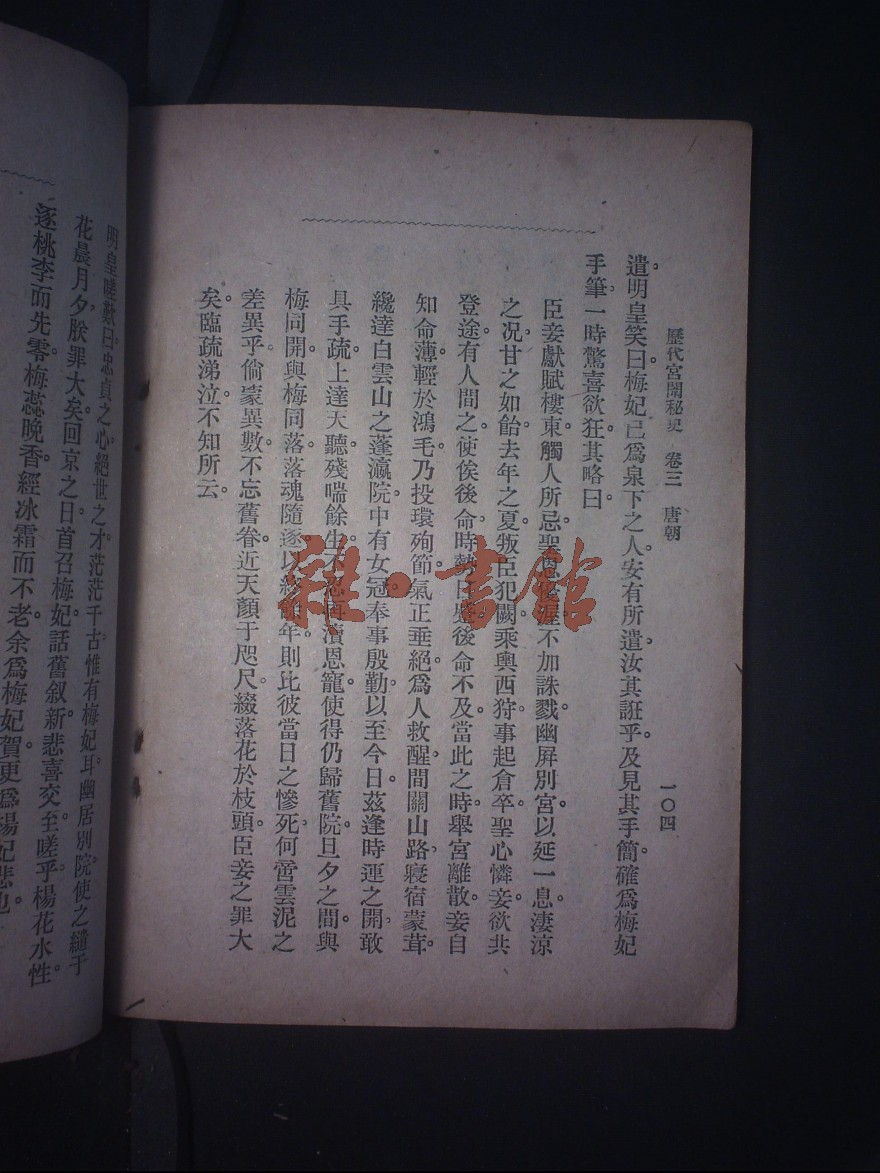 歷代宮闈秘史　卷三　唐朝　一〇四
遣。明皇笑曰。梅妃已爲泉下之人。安有所遣。汝其誑乎。及見其手簡。確爲梅妃
手筆。一時驚喜欲狂。其略曰。
臣妾獻賦樓東。觸人所忌。聖恩不加誅戮。幽屏別宮。以延一息。淒涼
之况。甘之如飴。去年之夏。叛臣犯闕。乘輿西狩。事起倉卒。聖心憐妾。欲共
登途。有人間之。使俟後命。時勢日蹙。後命不及。當此之時。舉宮離散。妾自
知命薄。輕於鴻毛。乃投環殉節。氣正垂絕。爲人救醒。間關山路。寢宿蒙茸。
纔達白雲山之蓬瀛院。中有女冠。奉事殷勤。以至今日。茲逢時運之開。敢
具手疏。上達天聽。殘喘餘生。不忍再瀆恩寵。使得仍歸舊院。旦夕之間。與
梅同開。與梅同落。落魂隨逐。以終餘年。則比彼當日之慘死。何啻雲泥之
差異乎。倘蒙異數。不忘舊眷。近天顏于咫尺。綴落花於枝頭。臣妾之罪大
矣。臨疏涕泣。不知所云。
明皇嗟歎曰。忠貞之心。絕世之才。茫茫千古。惟有梅妃耳。幽居別院。使之繾于
花晨月夕。朕罪大矣。回京之日。首召梅妃。話舊叙新。悲喜交至。嗟乎。楊花水性。
逐桃李而先零。梅蕊晚香。經冰霜而不老。余爲梅妃賀。更爲楊妃悲也。
雜·書館